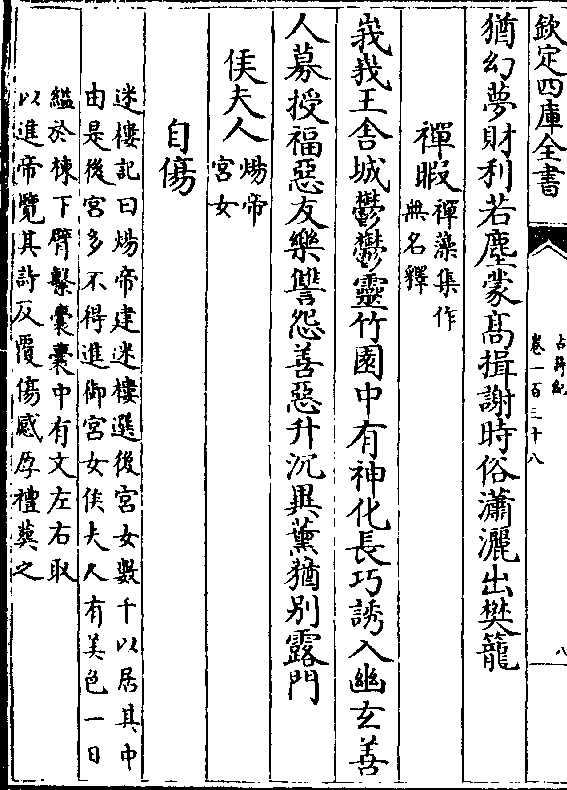 欽定四庫全書
古詩紀
卷一百三十八
八
猶幻夢財利若塵蒙髙揖謝時俗瀟灑出樊籠
禪暇
禪藻集作
無名釋
峩峩王舍城鬱鬱靈竹園中有神化長巧誘入幽玄善
人募授福惡友樂讐怨善惡升沉異薰猶别露門
侯夫人
煬帝
宮女
自傷
迷樓記曰煬帝建迷樓選後宮女數千以居其中
由是後宮多不得進御宮女侯夫人有美色一日
縊於棟下臂繫囊囊中有文左右取
以進帝覽其詩反覆傷感厚禮葬之